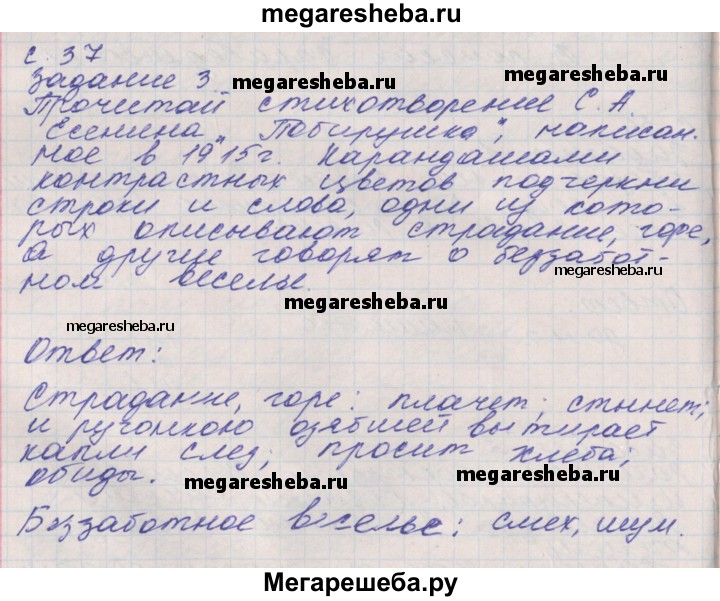 megaresheba.ru
с. 37
Задание 3 megaresheba.ru megaresheba.ru
Прочитай стихотворение С. А.
Есенина „Побирушка", написан-
ное в 1915 г. Карандашами
контрастных цветов подчеркни
строки и слова, одни из кото-
рых описывают страдание, горе,
а другие говорят о беззабот-
megaresheba.ru
ном веселье.
megaresheba.ru
megaresheba.ru
Ответ:
Страдание, горе: плачет; стынет;
и ручонкою озябшей вытирает
капли слез; просит хлеба;
обиды. megaresheba.ru megaresheba.ru
Беззаботное веселье: смех, шум.
Мегарешеба.ру